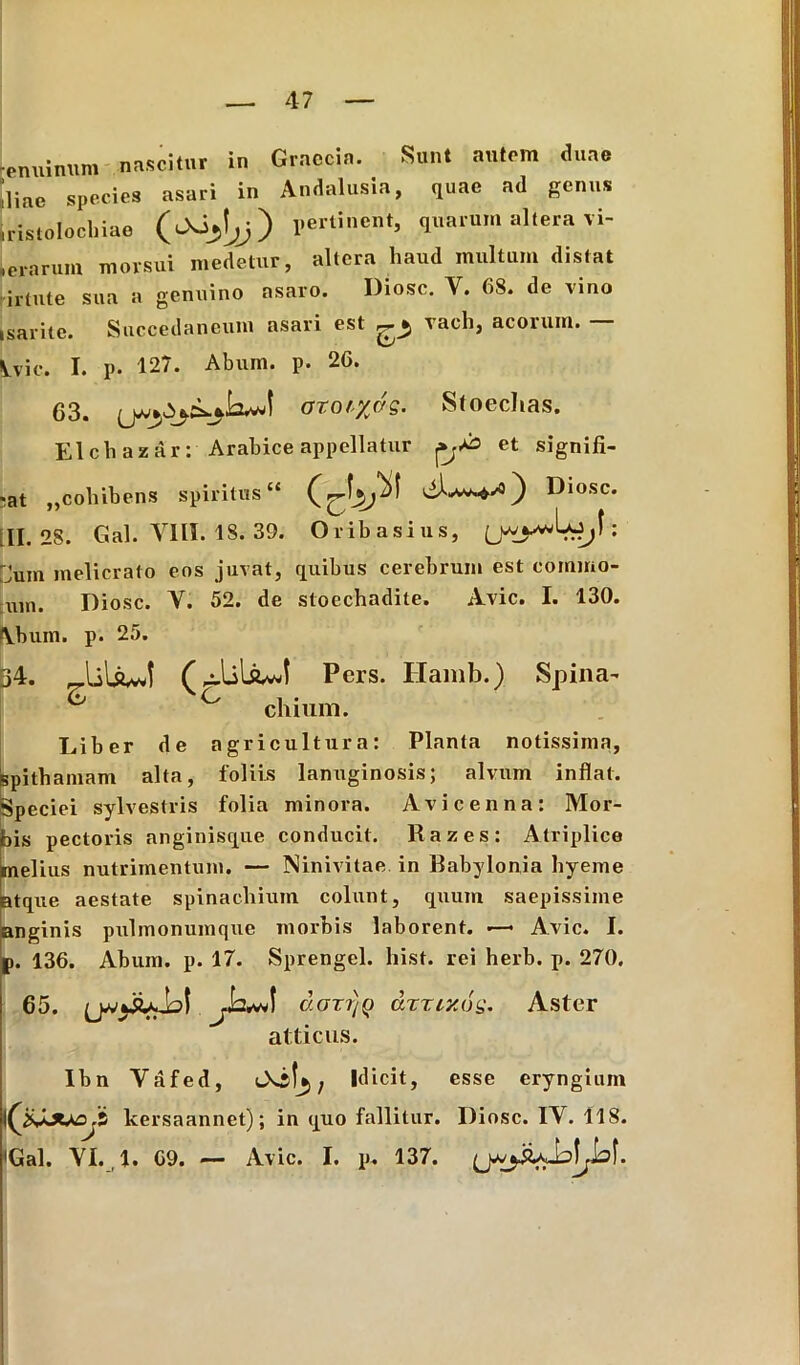 — 47 —
;enuinum nascitur in Graecia. Sunt autem duae
iliae species asari in Andalusia, quae ad genus
iristolochiae (زراوند) pertinent, quarum altera vi-
ierarum morsui medetur, altera haud multum distat
irtute sua a genuino asaro. Diosc. V. 68. de vino
isarite. Succedaneum asari est وج vach, acorum. —
Avic. I. p. 127. Abum. p. 26.
63. اسطوخوذوس στοιχάς. Stoechas.
Elchazâr: Arabice appellatur ضرم et signifi-
cat „cohibens spiritus“ (ممسك الارواح) Diosc.
III. 28. Gal. VIII. 18. 39. Oribasius, اريباسيوس:
Cum melicrato eos juvat, quibus cerebrum est commo-
tum. Diosc. V. 52. de stoechadite. Avic. I. 130.
Abum. p. 25.
64. اسفاناج (اسفاناخ Pers. Hamb.) Spina-
chium.
Liber de agricultura: Planta notissima,
spithamam alta, foliis lanuginosis; alvum inflat.
Speciei sylvestris folia minora. Avicenna: Mor-
bis pectoris anginisque conducit. Razes: Atriplice
melius nutrimentum. — Ninivitae in Babylonia hyeme
atque aestate spinachium colunt, quum saepissime
anginis pulmonumque morbis laborent. — Avic. I.
p. 136. Abum. p. 17. Sprengel. hist. rei herb. p. 270.
65. اسطر اطيقوس ἀστὴρ ἀττικός. Aster
atticus.
Ibn Vâfed, وافد, ldicit, esse eryngium
(قرصعنة kersaannet); in quo fallitur. Diosc. IV. 118.
Gal. VI. 1. 69. — Avic. I. p. 137. اطراطيقوس.